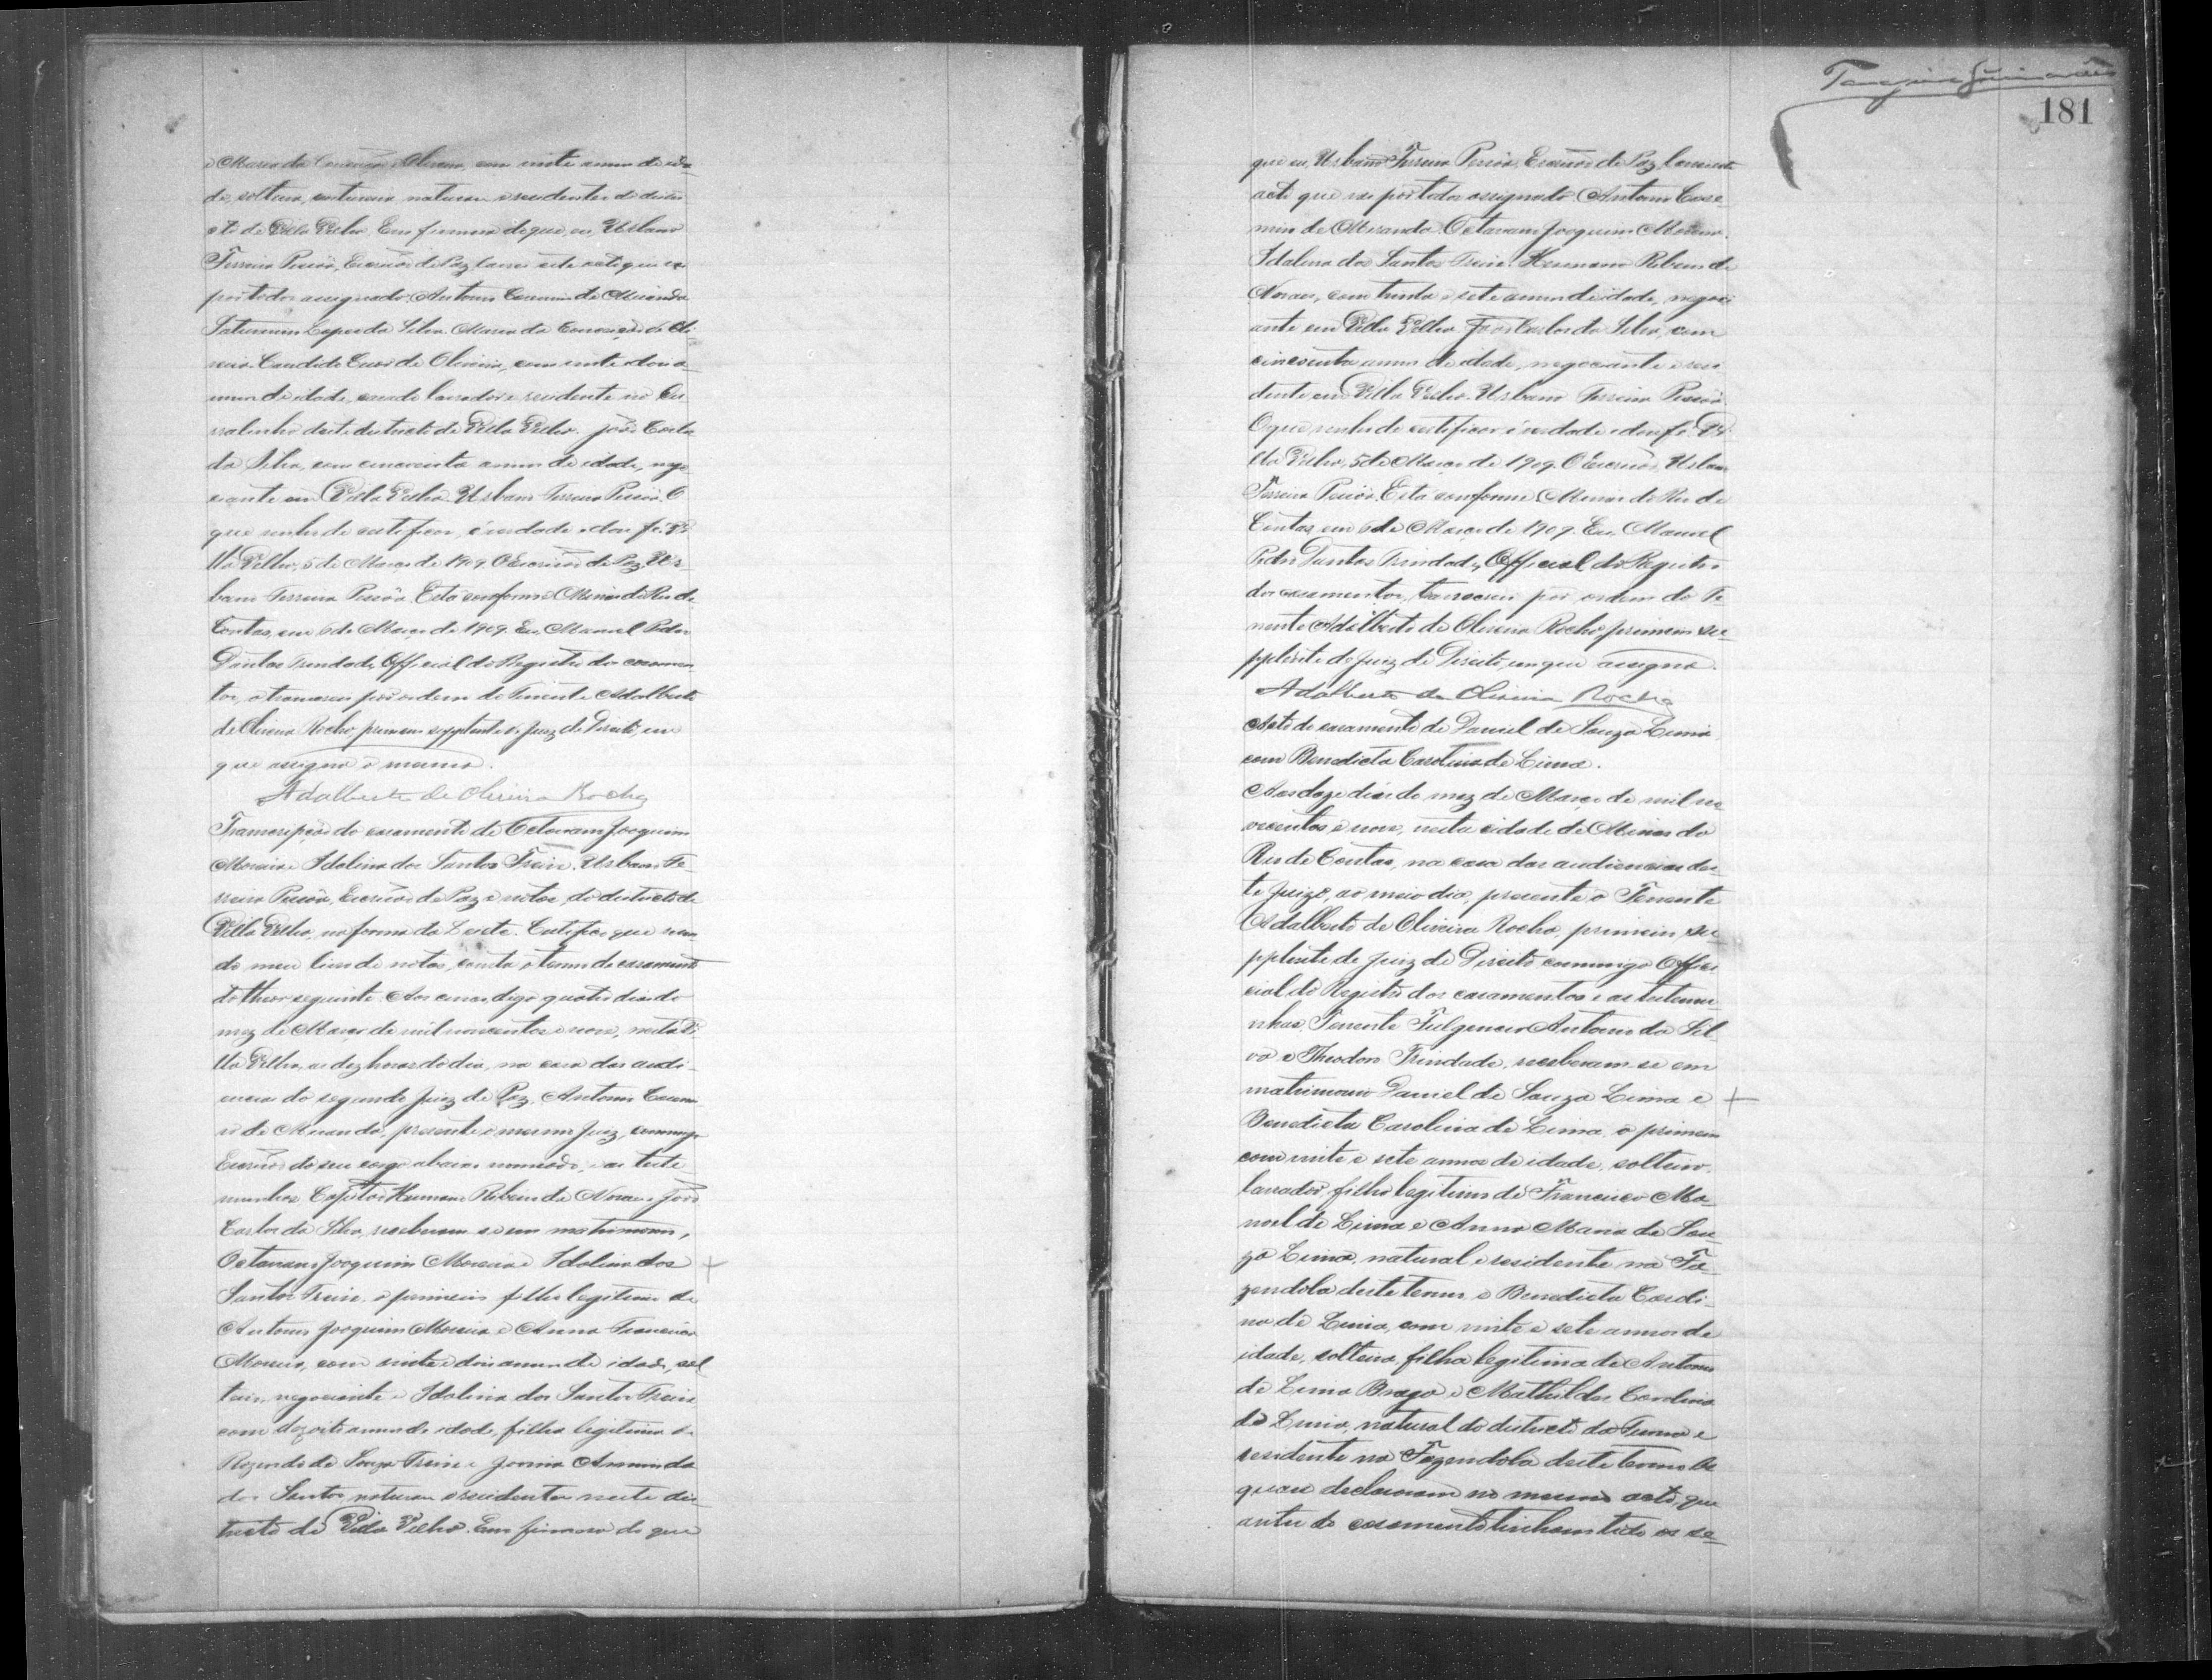 e Maria da Conceição Oliveira, com vinte annos de ida-
de, solteira, costureira naturaes e residentes do distri-
cto de Villa Velha. Em firmesa de que, eu, Urbano
Ferreira Pessôa, Escrivão de Paz lavrei este acto que vae
por todos assignado. Antonio Casemiro de Miranda
Saturnino Lopes da Silva. Maria da Conceição de Oli-
veira. Candido de Oliveira, com vinte e dous a-
nnos de idade, casado lavrador e residente no Cur-
ralinho deste districto de Villa Velha. João Carlos
da Silva, com cincoenta annos de idade, nego-
ciante em Villa Velha. Urbano Ferreira Pessôa. O
que venho de certificar, é verdade e dou fé. Vi-
lla Velha, 5 de Março de 1909. O Escrivão de Paz Ur-
bano Ferreira Pessôa. Está conforme. Minas do Rio de
Contas, em 6 de Março de 1909. Eu, Manoel Pedro
Dantas Trindade, Official do Registro dos casamen-
tos, o transcrevi por ordem do Tenente Adalberto
de Oliveira Rocha, primeiro supplente do Juiz de Direito, em
que assigna o mesmo.
Adalberto de Oliveira Rocha
Transcripção do casamento de Octaviano Joaquim
Moreira e Idalina dos Santos Freire. Urbano Fe-
rreira Pessôa, Escrivão de Paz e notas do districto de
Villa Velha, na forma da Lei etc. Certifico que
do meu livro de notas, consta o termo de casamento
do theor seguinte: Aos cinco digo quatro dias do
mez de Março de mil novecentos e nove, nesta Vi-
lla Velha, as dez horas do dia, na casa das audi-
encias do segundo Juiz de Paz, Antonio Casemi-
ro de Miranda, presente o mesmo Juiz, commigo
Escrivão do seu cargo abaixo nomeado, e as teste-
munhas Capitão Hermano Ribeiro de Novaes e João
Carlos da Silva, receberam-se em matrimonio,
Octaviano Joaquim Moreira e Idalina dos
Santos Freire, o primeiro filho legitimo de
Antonio Joaquim Moreira e Anna Francisca
Moreira, com vinte e dois annos de idade, sol-
teiro, negociante e Idalina dos Santos Freire
com dezoito annos de idade, filha legitima de
Rozendo de Souza Freire e Jovina Armunda
dos Santos, naturaes e residentes neste dis-
tricto de Villa Velha. Em firmesa do que
Guimarães
181
que eu, Urbano Ferreira Pessôa, Escrivão de Paz, lavrei este
acto que vae por todos assignado. Antonio Case-
miro de Miranda. Octaviano Joaquim Moreira.
Idalina dos Santos Freire. Hermano Ribeiro de
Novaes, com trinta e sete annos de idade, negoci-
ante em Villa Velha. João Carlos da Silva, com
cincoenta annos de idade, negociante e resi-
dente em Villa Velha. Urbano Ferreira Pessôa.
O que venho de certificar é verdade e dou fé. Vi-
lla Velha, 5 de Março de 1909. O Escrivão, Urbano
Ferreira Pessôa. Está conforme. Minas do Rio de
Contas, em 6 de Março de 1909. Eu, Manoel
Pedro Dantas Trindade, Official do Registro
dos casamentos, transcrevi por ordem do Te-
nente Adalberto de Oliveira Rocha, primeiro su-
pplente do Juiz de Direito, em que assigna.
Adalberto de Oliveira Rocha
Acto de casamento de Daniel de Souza Lima
com Benedicta Carolina de Lima.
Aos doze dias do mez de Março de mil no-
vecentos e nove, nesta cidade de Minas do
Rio de Contas, na casa das audiencias des-
te Juizo, ao meio dia, presente o Tenente
Adalberto de Oliveira Rocha, primeiro su-
pplente do Juiz de Direito commigo Offi-
cial do Registro dos casamentos e as testemu-
nhas, Tenente Fulgencio Antonio da Sil-
va e Theodoro Trindade, receberam-se em
matrimonio Daniel de Souza Lima e
Benedicta Carolina de Lima, o primeiro
com vinte e sete annos de idade, solteiro,
lavrador, filho legitimo de Francisco Ma-
noel de Lima e Anna Maria de Sou-
za Lima, natural e residente na Fa-
zendola deste termo, e Benedicta Caroli-
na de Lima, com vinte e sete annos de
idade, solteira, filha legitima de Antonio
de Lima Braga, e Mathildes Carolina
de Lima, natural do districto da Furna e
residente na Fazendola deste termo. Os
quaes declararam no mesmo acto, que
antes do casamento tinham tido os se-